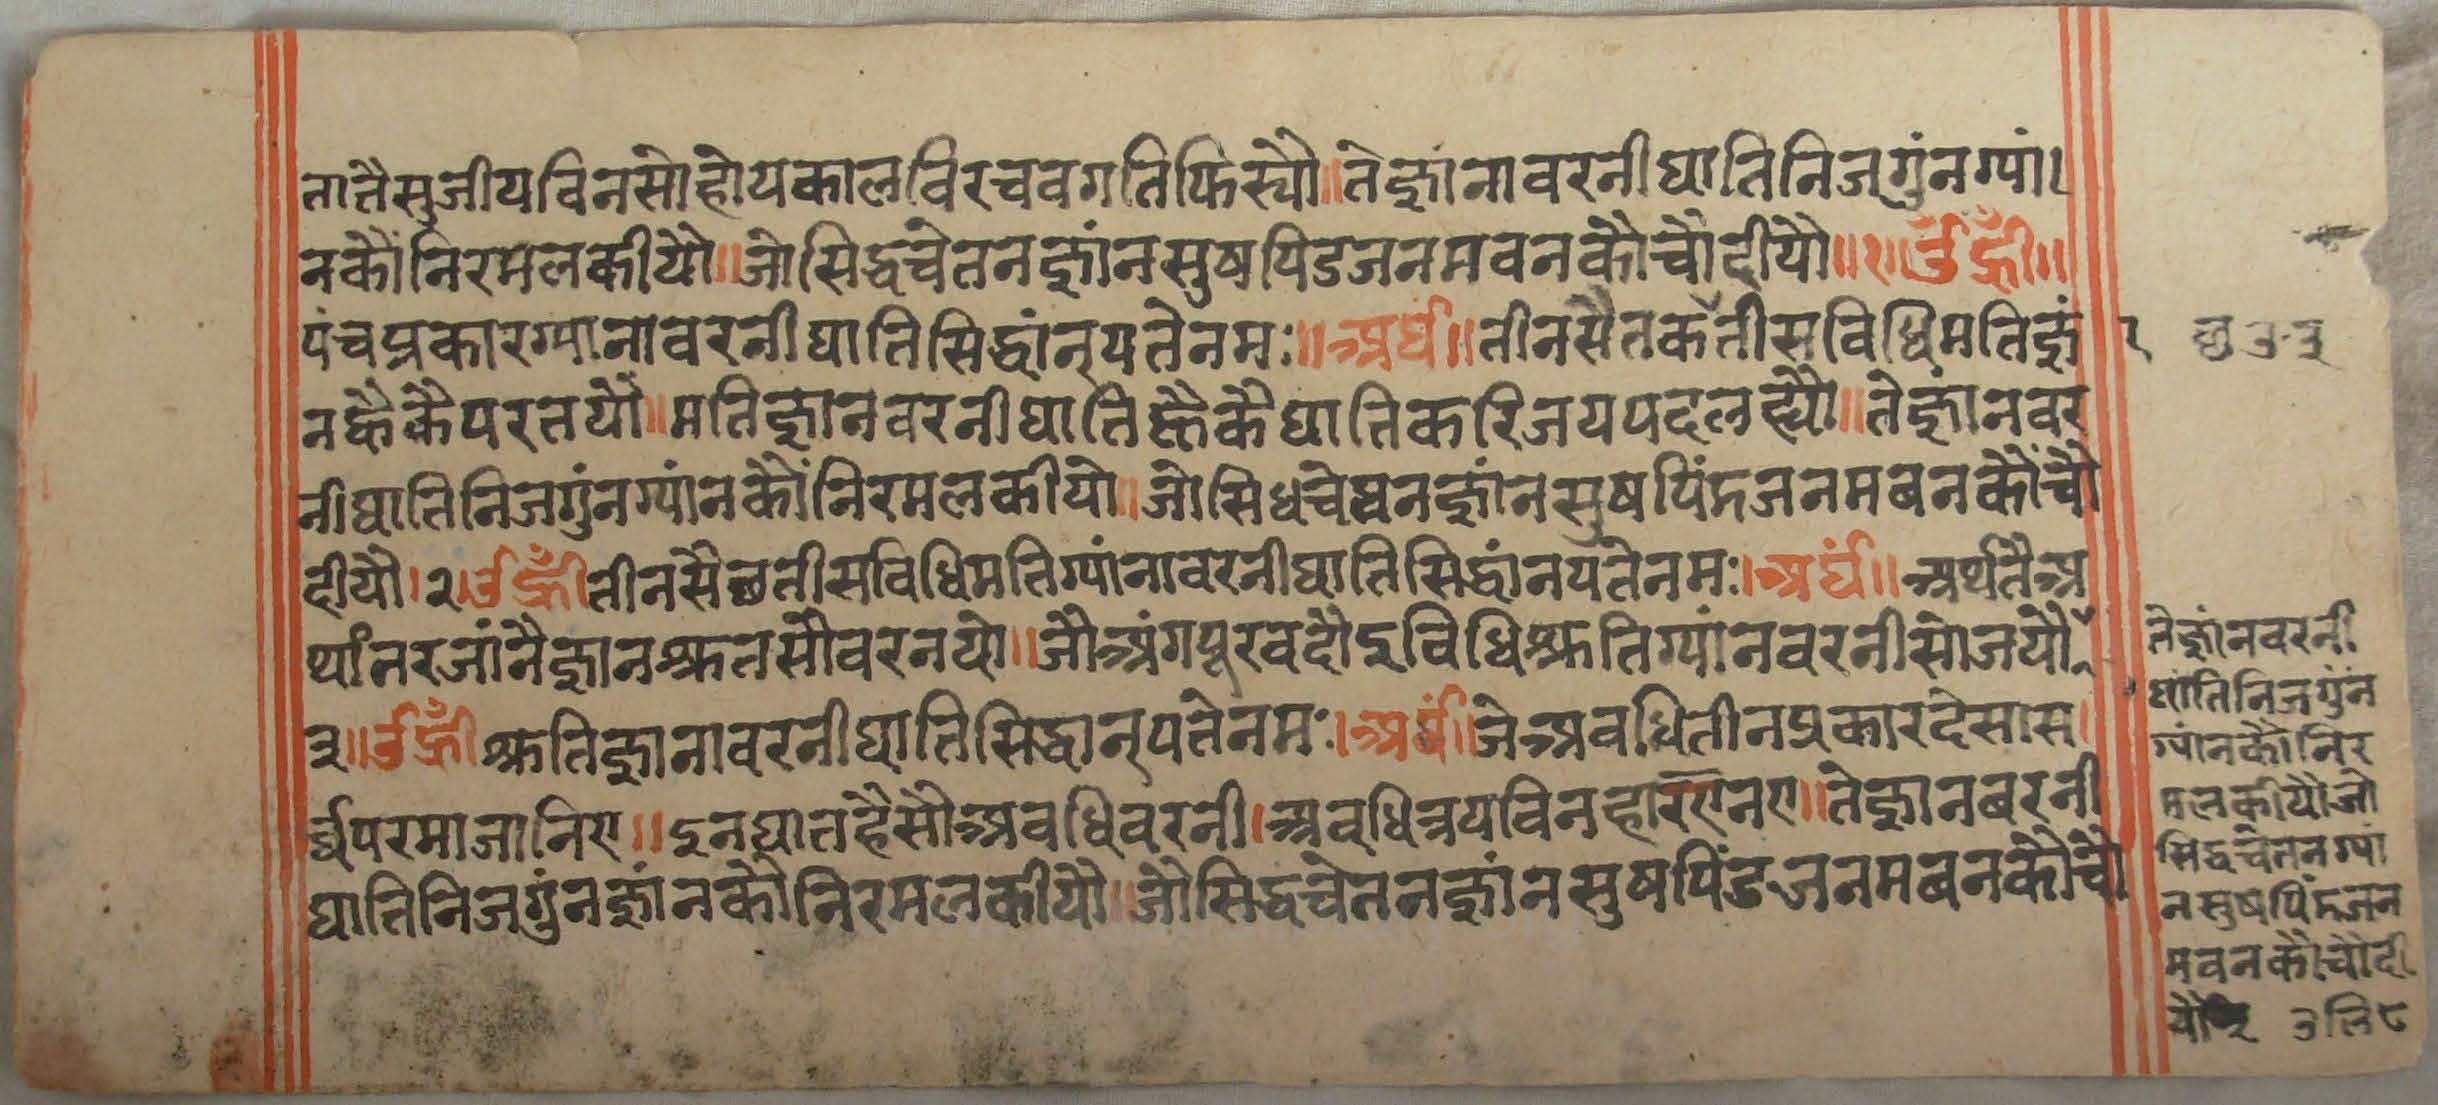 तातैसुजीयविनसोहोयकालविरचवगतिफिस्यौ॥तेज्ञांनावरनीघातिनिजगुंनग्पां।
नकौंनिरमलकीयौ॥जोसिद्धचेतनज्ञांनसुषपिडजनमवनकौचौदीयौ॥१॥ॐह्रीँ॥
पंचप्रकारग्पानावरनीघातिसिद्धांन्पतेनमः॥अर्घं॥तीनसैतकतीसविधिमतिज्ञं
नह्वैकैपरतयौं॥मतिज्ञानवरनीघातिह्वैकैघातिकरिजयपदलह्यौ॥तेज्ञांनवर
नीघातिनिजगुंनग्पांनकौंनिरमलकीयो॥जोसिधचेतनज्ञांनसुषपिंडजनमबनकौंचौ
दीयौ।२।ॐह्रीँतीनसैछतीसविधिमतिग्पांनावरनीघातिसिद्धांनयतेनमः।अर्घं॥अर्थतैअ
र्थांनरजांनैज्ञानश्रुतसौवरनयो॥जौअंगपूरवदौदुविधिश्रुतिग्पांनवरनीसोजयौ
३॥ॐह्रीँश्रुतिज्ञानावरनीघातिसिद्धान्पतेनमः।अर्घं॥जेअवधितीनप्रकारदेसास।
र्द्धपरमाजानिए॥इनघातहैसौअवधिवरनी।अवधित्रयविनहारएनए॥तेज्ञानबरनी
घातिनिजगुंनज्ञांनकौनिरमलकीयौ॥जौसिद्धचेतनज्ञांनसुषपिंडजनमबनकौचौ
१ छ३-३
तेज्ञांनवरनी
घातिनिजगुंन
ग्पांनकौनिर
मलकीयौजो
सिद्धचेतनग्पां
नसुषपिंडजन
मवनकौचौदी
यौ ३लि८